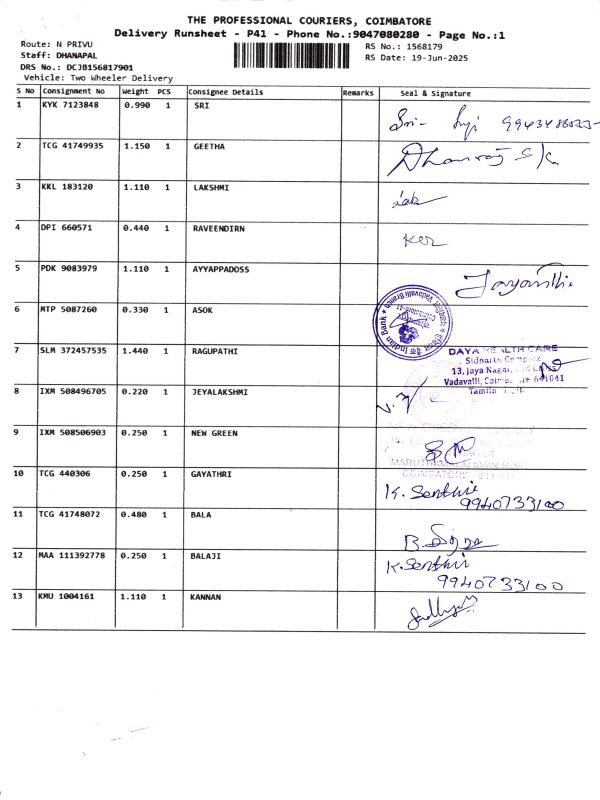 THE PROFESSIONAL COURIERS, COIMBATORE
Delivery Runsheet - P41 - Phone No.:9047080280 - Page No.:1
Route: N PRIVU
RS No.: 1568179
Staff: DHANAPAL
RS Date: 19-Jun-2025
DRS No.: DCJB156817901
Vehicle: Two Wheeler Delivery
S No Consignment No Weight PCS Consignee Details Remarks Seal & Signature
1 KYK 7123848 0.990 1 SRI
2 TCG 41749935 1.150 1 GEETHA
Dhanraj S/o
3 KKL 183120 1.110 1 LAKSHMI
4 DPI 660571 0.440 1 RAVEENDIRN
5 PDK 9083979 1.110 1 AYYAPPADOSS
Jayanthi.
6 MTP 5087260 0.330 1 ASOK
Indian Bank
Vadavalli Branch
7 SLM 372457535 1.440 1 RAGUPATHI
DAYA HEALTH CARE
Sidharth Complex
13, Jaya Nagar,
Vadavalli, Coimbatore 641041
8 IXM 508496705 0.220 1 JEYALAKSHMI
9 IXM 508506903 0.250 1 NEW GREEN
MARUTHAMALAI MAIN ROAD
COIMBATORE
10 TCG 440306 0.250 1 GAYATHRI
K. Senthil
9940733100
11 TCG 41748072 0.480 1 BALA
12 MAA 111392778 0.250 1 BALAJI
K. Senthil
9940733100
13 KMU 1004161 1.110 1 KANNAN